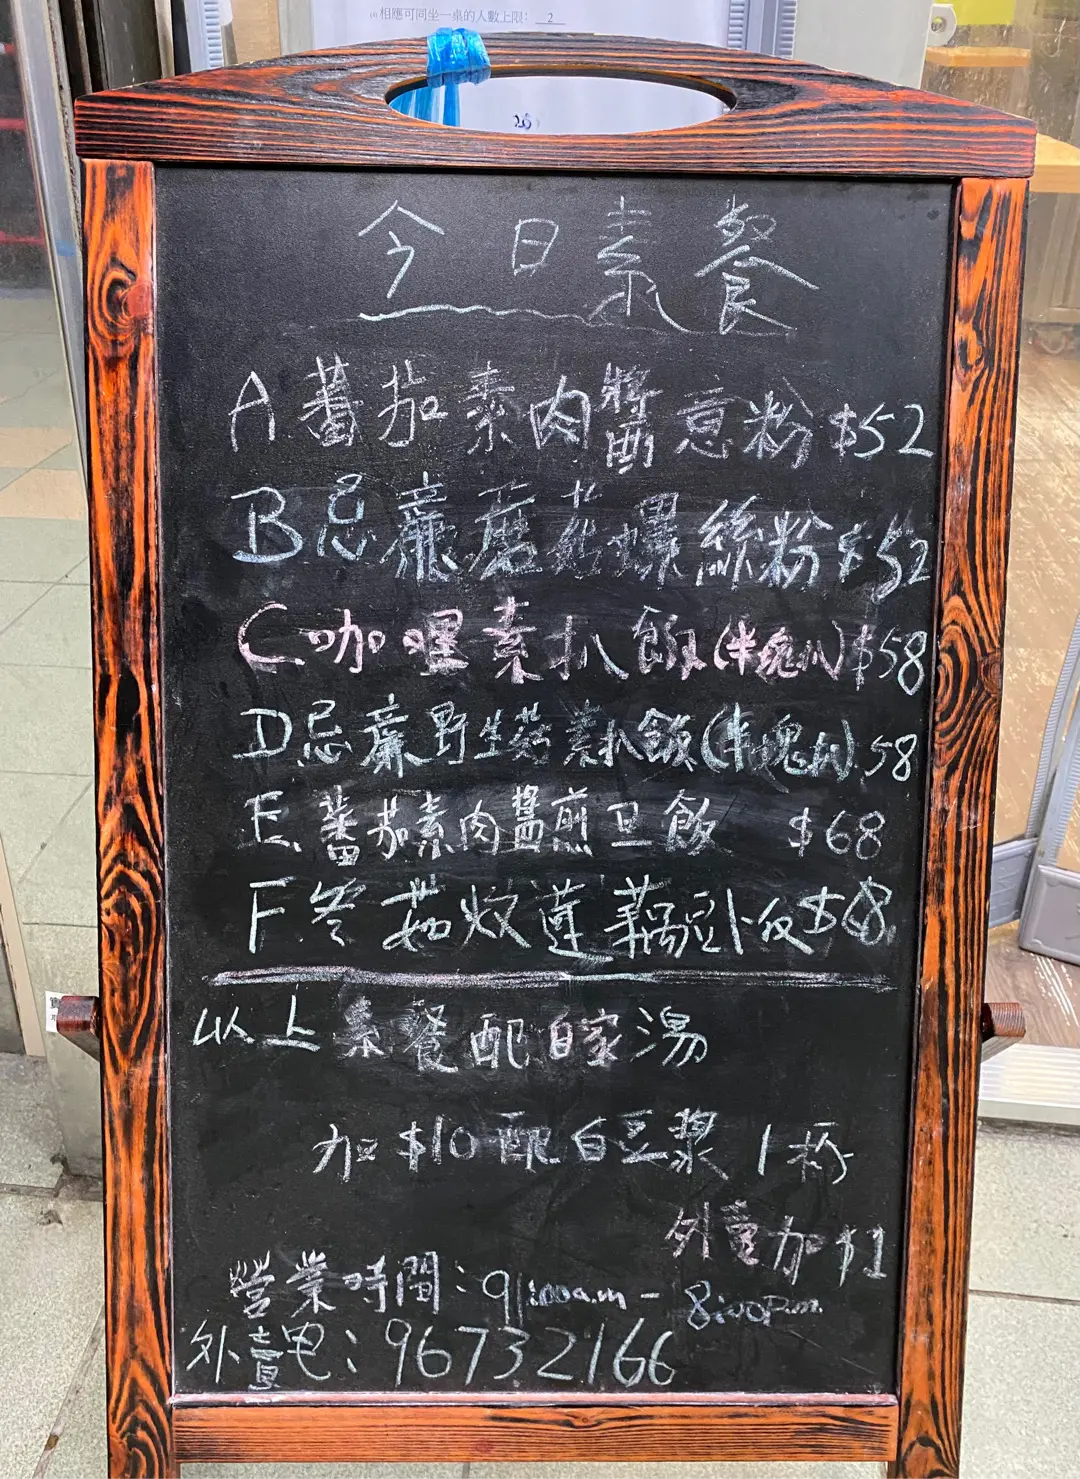 (4) 相應可同坐一桌的人數上限： 2
今日素餐
A 蕃茄素肉醬意粉 $52
B 忌廉蘑菇螺絲粉 $52
C 咖喱素扒飯(半塊扒) $58
D 忌廉野生菇素扒飯(半塊扒) 58
E. 蕃茄素肉醬煎旦飯 $68
F 冬菇炆蓮藕豆卜饭 $68
以上素餐配自家湯
加 $10 配白豆漿 1 杯
外賣加 $1
營業時間： :00a.m – 8:00P.m.
外賣电： 96732166